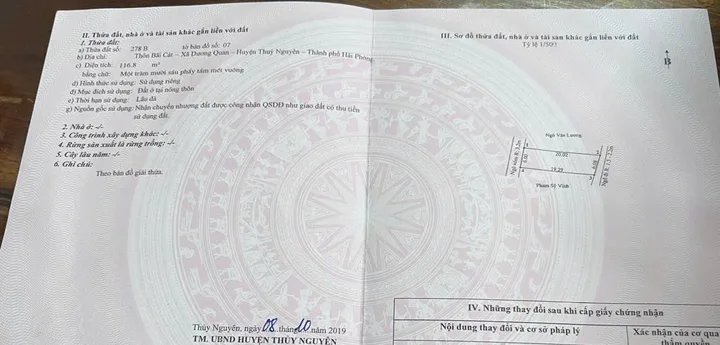 II. Thửa đất, nhà ở và tài sản khác gắn liền với đất
1. Thửa đất:
a) Thửa đất số: 278 B tờ bản đồ số: 07
b) Địa chỉ: Thôn Bãi Cát – Xã Dương Quan – Huyện Thuỷ Nguyên – Thành phố Hải Phòng
c) Diện tích: 116.8 m²
bằng chữ: Một trăm mười sáu phẩy tám mét vuông
d) Hình thức sử dụng: Sử dụng riêng
đ) Mục đích sử dụng: Đất ở tại nông thôn
e) Thời hạn sử dụng: Lâu dà
g) Nguồn gốc sử dụng: Nhận chuyển nhượng đất được công nhận QSDĐ như giao đất có thu tiền
sử dụng đất.
2. Nhà ở: -/-
3. Công trình xây dựng khác: -/-
4. Rừng sản xuất là rừng trồng: -/-
5. Cây lâu năm: -/-
6. Ghi chú:
Theo bản đồ giải thửa.
Thủy Nguyên, ngày 08 tháng 10 năm 2019
TM. UBND HUYỆN THỦY NGUYÊN
III. Sơ đồ thửa đất, nhà ở và tài sản khác gắn liền với đất
Tỷ lệ 1/500
B
Ngô Văn Lương
20.02
19.29
Phạm Sỹ Vinh
IV. Những thay đổi sau khi cấp giấy chứng nhận
Nội dung thay đổi và cơ sở pháp lý
Xác nhận của cơ qua
thẩm quyền